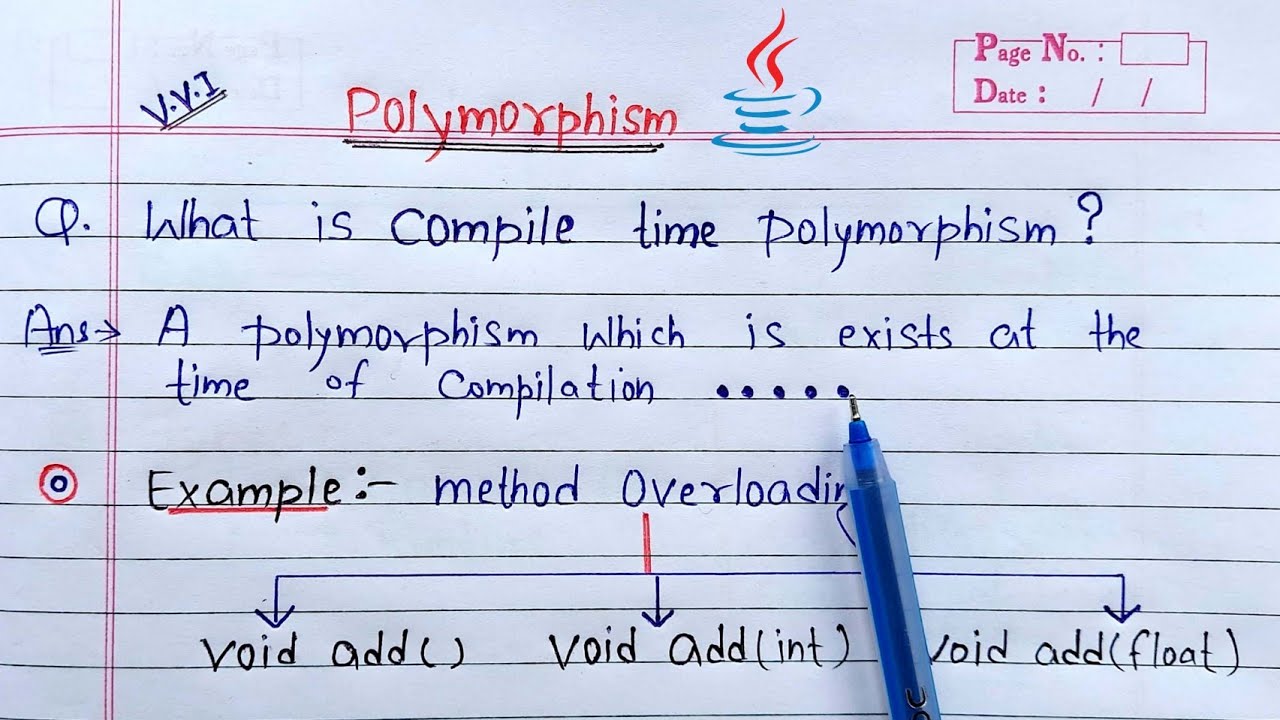 Page No. :
Date : / /
V.V.I
Polymorphism
Q. What is compile time polymorphism?
Ans→ A polymorphism which is exists at the
time of compilation .....
Example:- method Overloadin
void add() void add(int) void add(float)